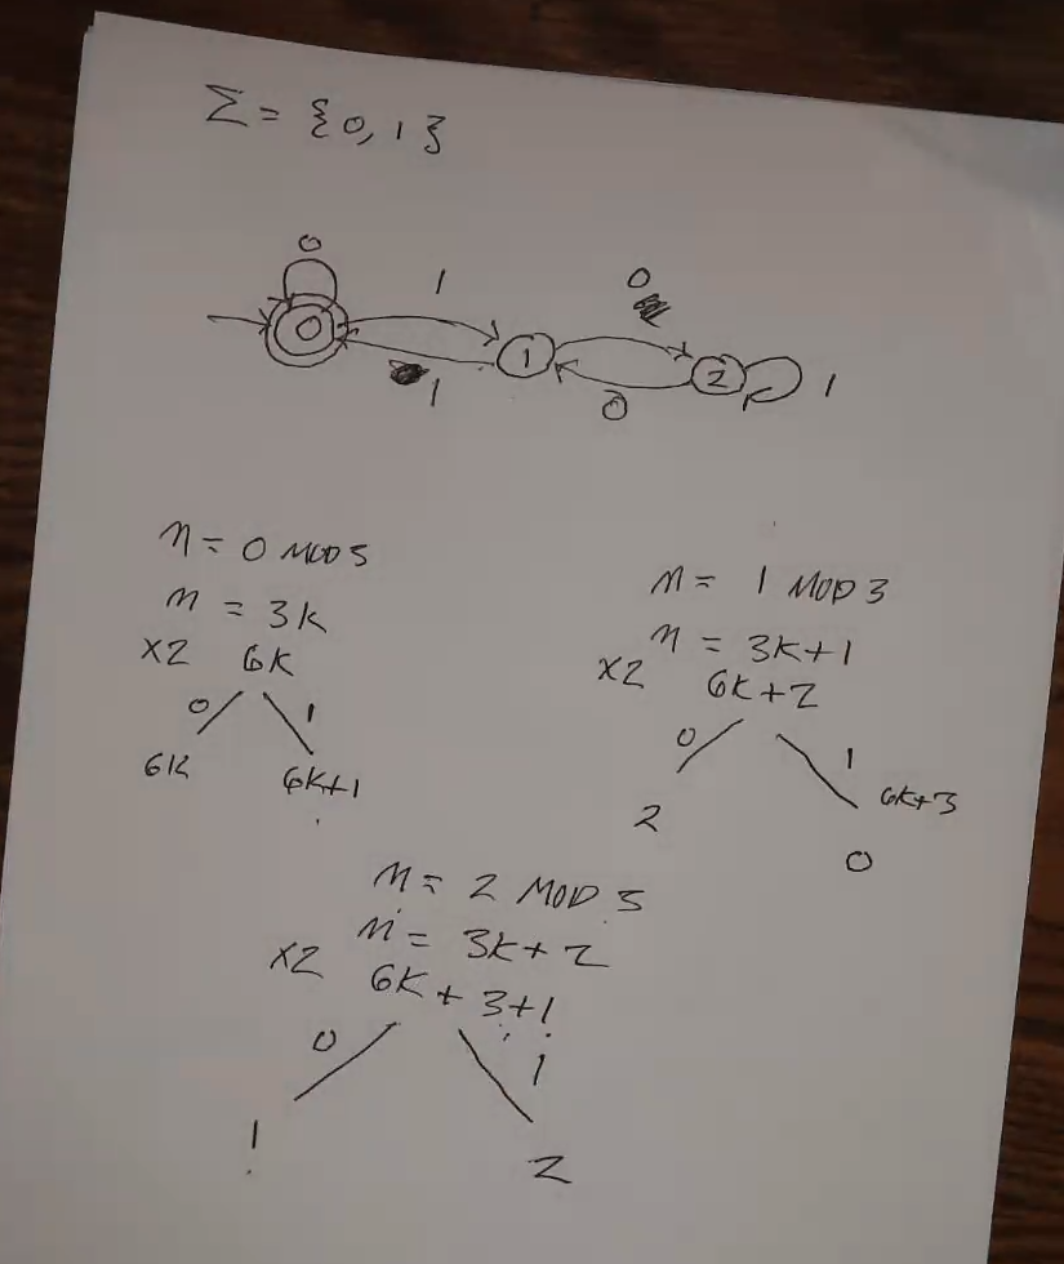 Σ = {0, 1}
0
1
0
0
1
2
1
1
0
n = 0 MOD 3
n = 3k
x2 6k
0 1
6k 6k+1
n = 1 MOD 3
n = 3k+1
x2 6k+2
0 1
6k+3
2
0
n = 2 MOD 3
n = 3k+2
x2 6k + 3+1
0
1
1
2